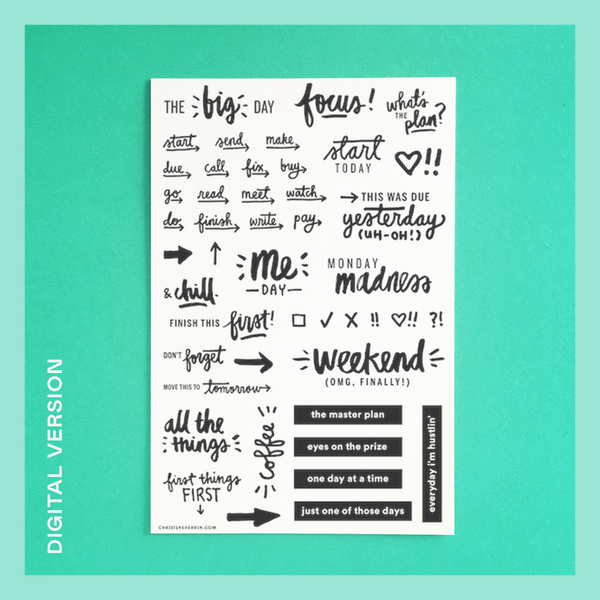 THE big DAY
focus!
what's
THE
plan?
start send make
due call fix buy
go read meet watch
do finish write pay
start
TODAY
!!
THIS WAS DUE
yesterday
(UH-OH!)
& chill.
me
DAY
MONDAY
madness
FINISH THIS first!
!! !! ?!
DON'T forget
MOVE THIS TO tomorrow
weekend
(OMG, FINALLY!)
all the
things
coffee
first things
FIRST
the master plan
eyes on the prize
one day at a time
just one of those days
everyday i'm hustlin'
CHRISTINEHERRIN.COM
DIGITAL VERSION